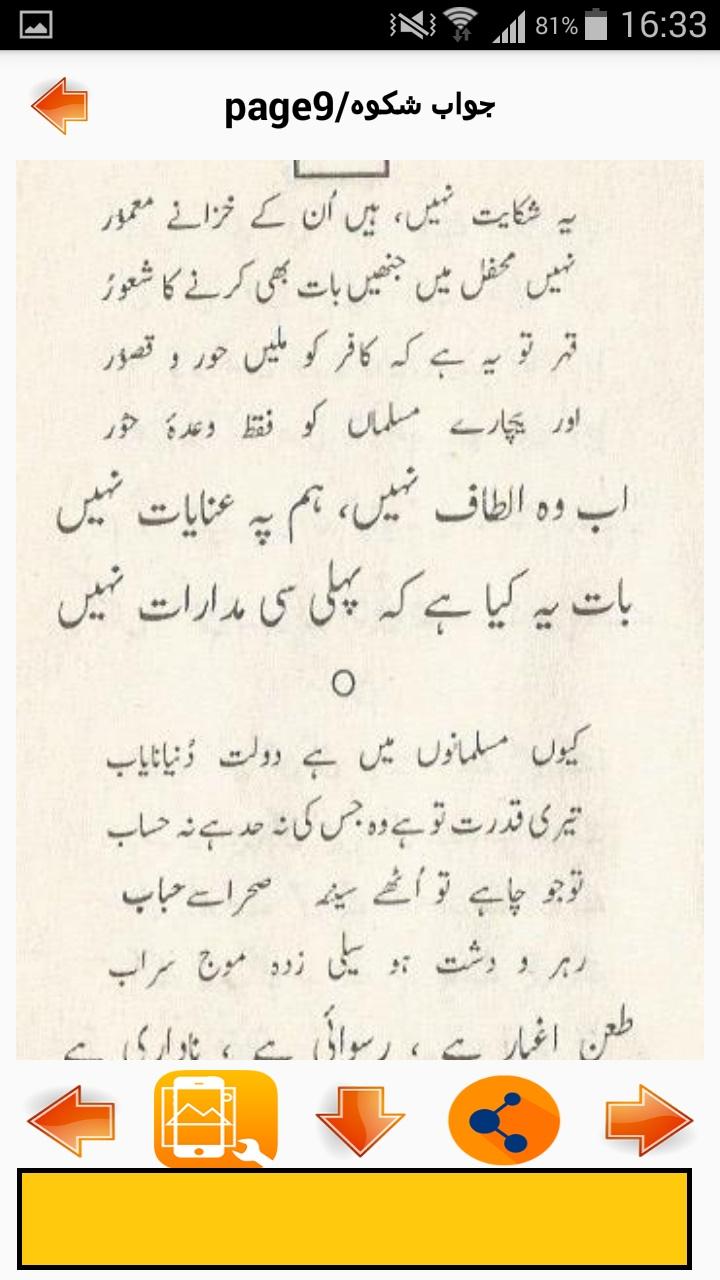 81% 16:33
page9/جواب شکوہ
یہ شکایت نہیں، ہیں اُن کے خزانے معمُور
نہیں محفل میں جنھیں بات بھی کرنے کا شعور
قہر تو یہ ہے کہ کافر کو ملیں حور و قصُور
اور بیچارے مسلماں کو فقط وعدۂ حُور
اب وہ الطاف نہیں، ہم پہ عنایات نہیں
بات یہ کیا ہے کہ پہلی سی مدارات نہیں
کیوں مسلمانوں میں ہے دولت دُنیا نایاب
تیری قدرت تو ہے وہ جس کی نہ حد ہے نہ حساب
تو جو چاہے تو اُٹھے سینۂ صحرا سے حباب
رہر و دشت ہو سیلی زدہ موج سراب
طعن اغیار ہے ، رسوائی ہے ، ناداری ہے